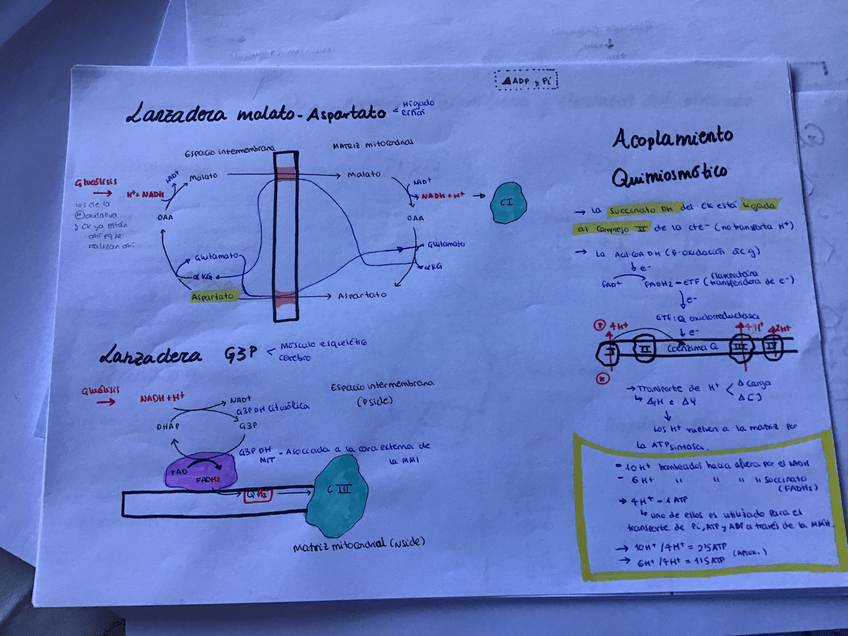 ΔADP y Pi
Lanzadera malato-Aspartato < Hígado
Riñón
Espacio intermembrana
MATRIZ mitocondrial
Glucólisis
H⁺+NADH
NAD⁺
Malato
Malato
NAD⁺
NADH+H⁺
CI
los de la
oxidativa
y CK ya están
ahí
OAA
OAA
Glutamato
Glutamato
αKG
αKG
Aspartato
Aspartato
Lanzadera G3P < Músculo esquelético
cerebro
Glucólisis
NADH+H⁺
NAD⁺
Espacio intermembrana
(Pside)
G3PDH citosólica
DHAP
G3P
G3PDH - Asociada a la cara externa de
MIT
la MMI
FAD
FADH2
QH2
CIII
Matriz mitocondrial (Nside)
Acoplamiento
Quimiosmótico
→ La Succinato DH del CK está ligada
al complejo II de la cte⁻ (no transporta H⁺)
→ La Acil CoA DH (β-oxidación
e⁻
FAD⁺
FADH2-ETF (flavoproteína
transferidora de e⁻)
e⁻
ETF:Q oxidorreductasa
e⁻
P
4H⁺
4H⁺
2H⁺
I
II
Coenzima Q
III
IV
N
→ Transporte de H⁺ < Δ carga
Δ[]
↳ ΔpH e ΔΨ
Los H⁺ vuelven a la matriz por
la ATPsintasa.
- 10H⁺ bombeados hacia afuera por el NADH
- 6H⁺ " " " " succinato
(FADH2)
→ 4H⁺ - 1ATP
↳ uno de ellos es utilizado para el
transporte de Pi, ATP y ADP a través de la MMI.
→ 10H⁺/4H⁺ = 2'5ATP
(Aprox.)
→ 6H⁺/4H⁺ = 1'5ATP